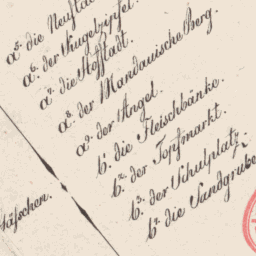 a⁵. die Neustadt
a⁶. der Kugelzipfel.
a⁷. die Hofstadt.
a⁸. der Mandauische Berg.
a⁹. der Angel.
b¹. die Fleischbänke.
b². der Topfmarkt.
b³. der Schulplatz.
b⁴. die Sandgrube